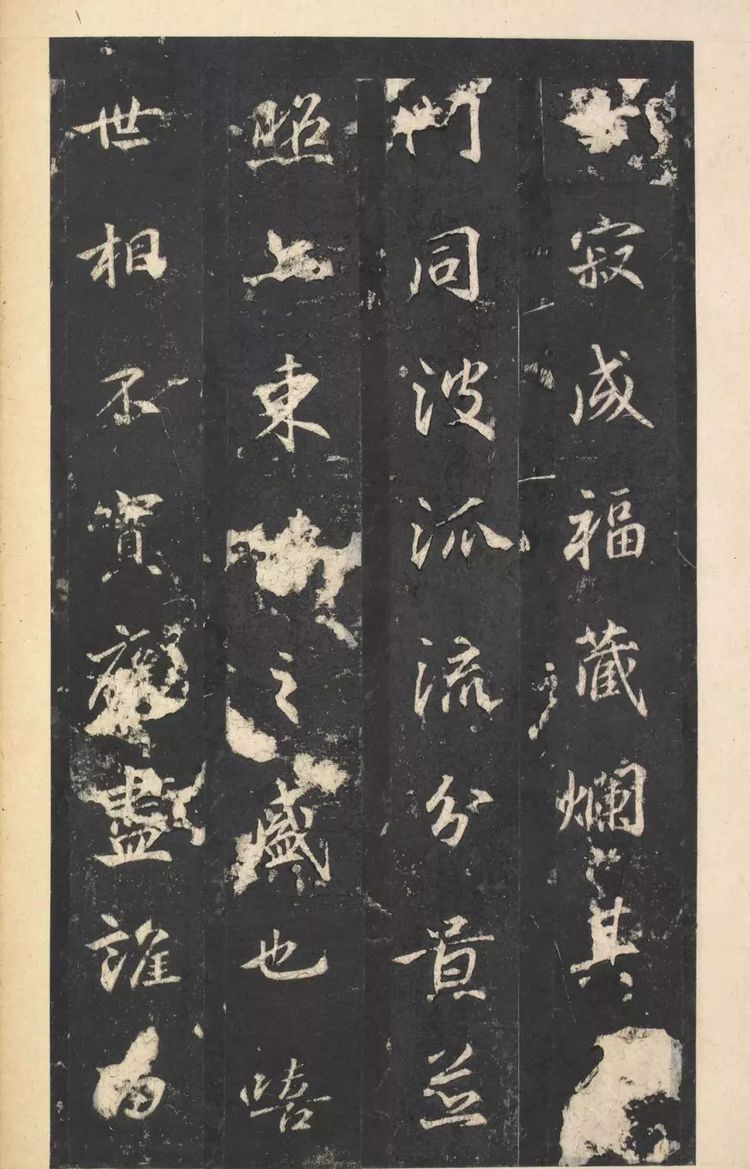 寂成福藏爛其
門同波派流分景並
照上東之盛也嘻
世相不實盡誰為